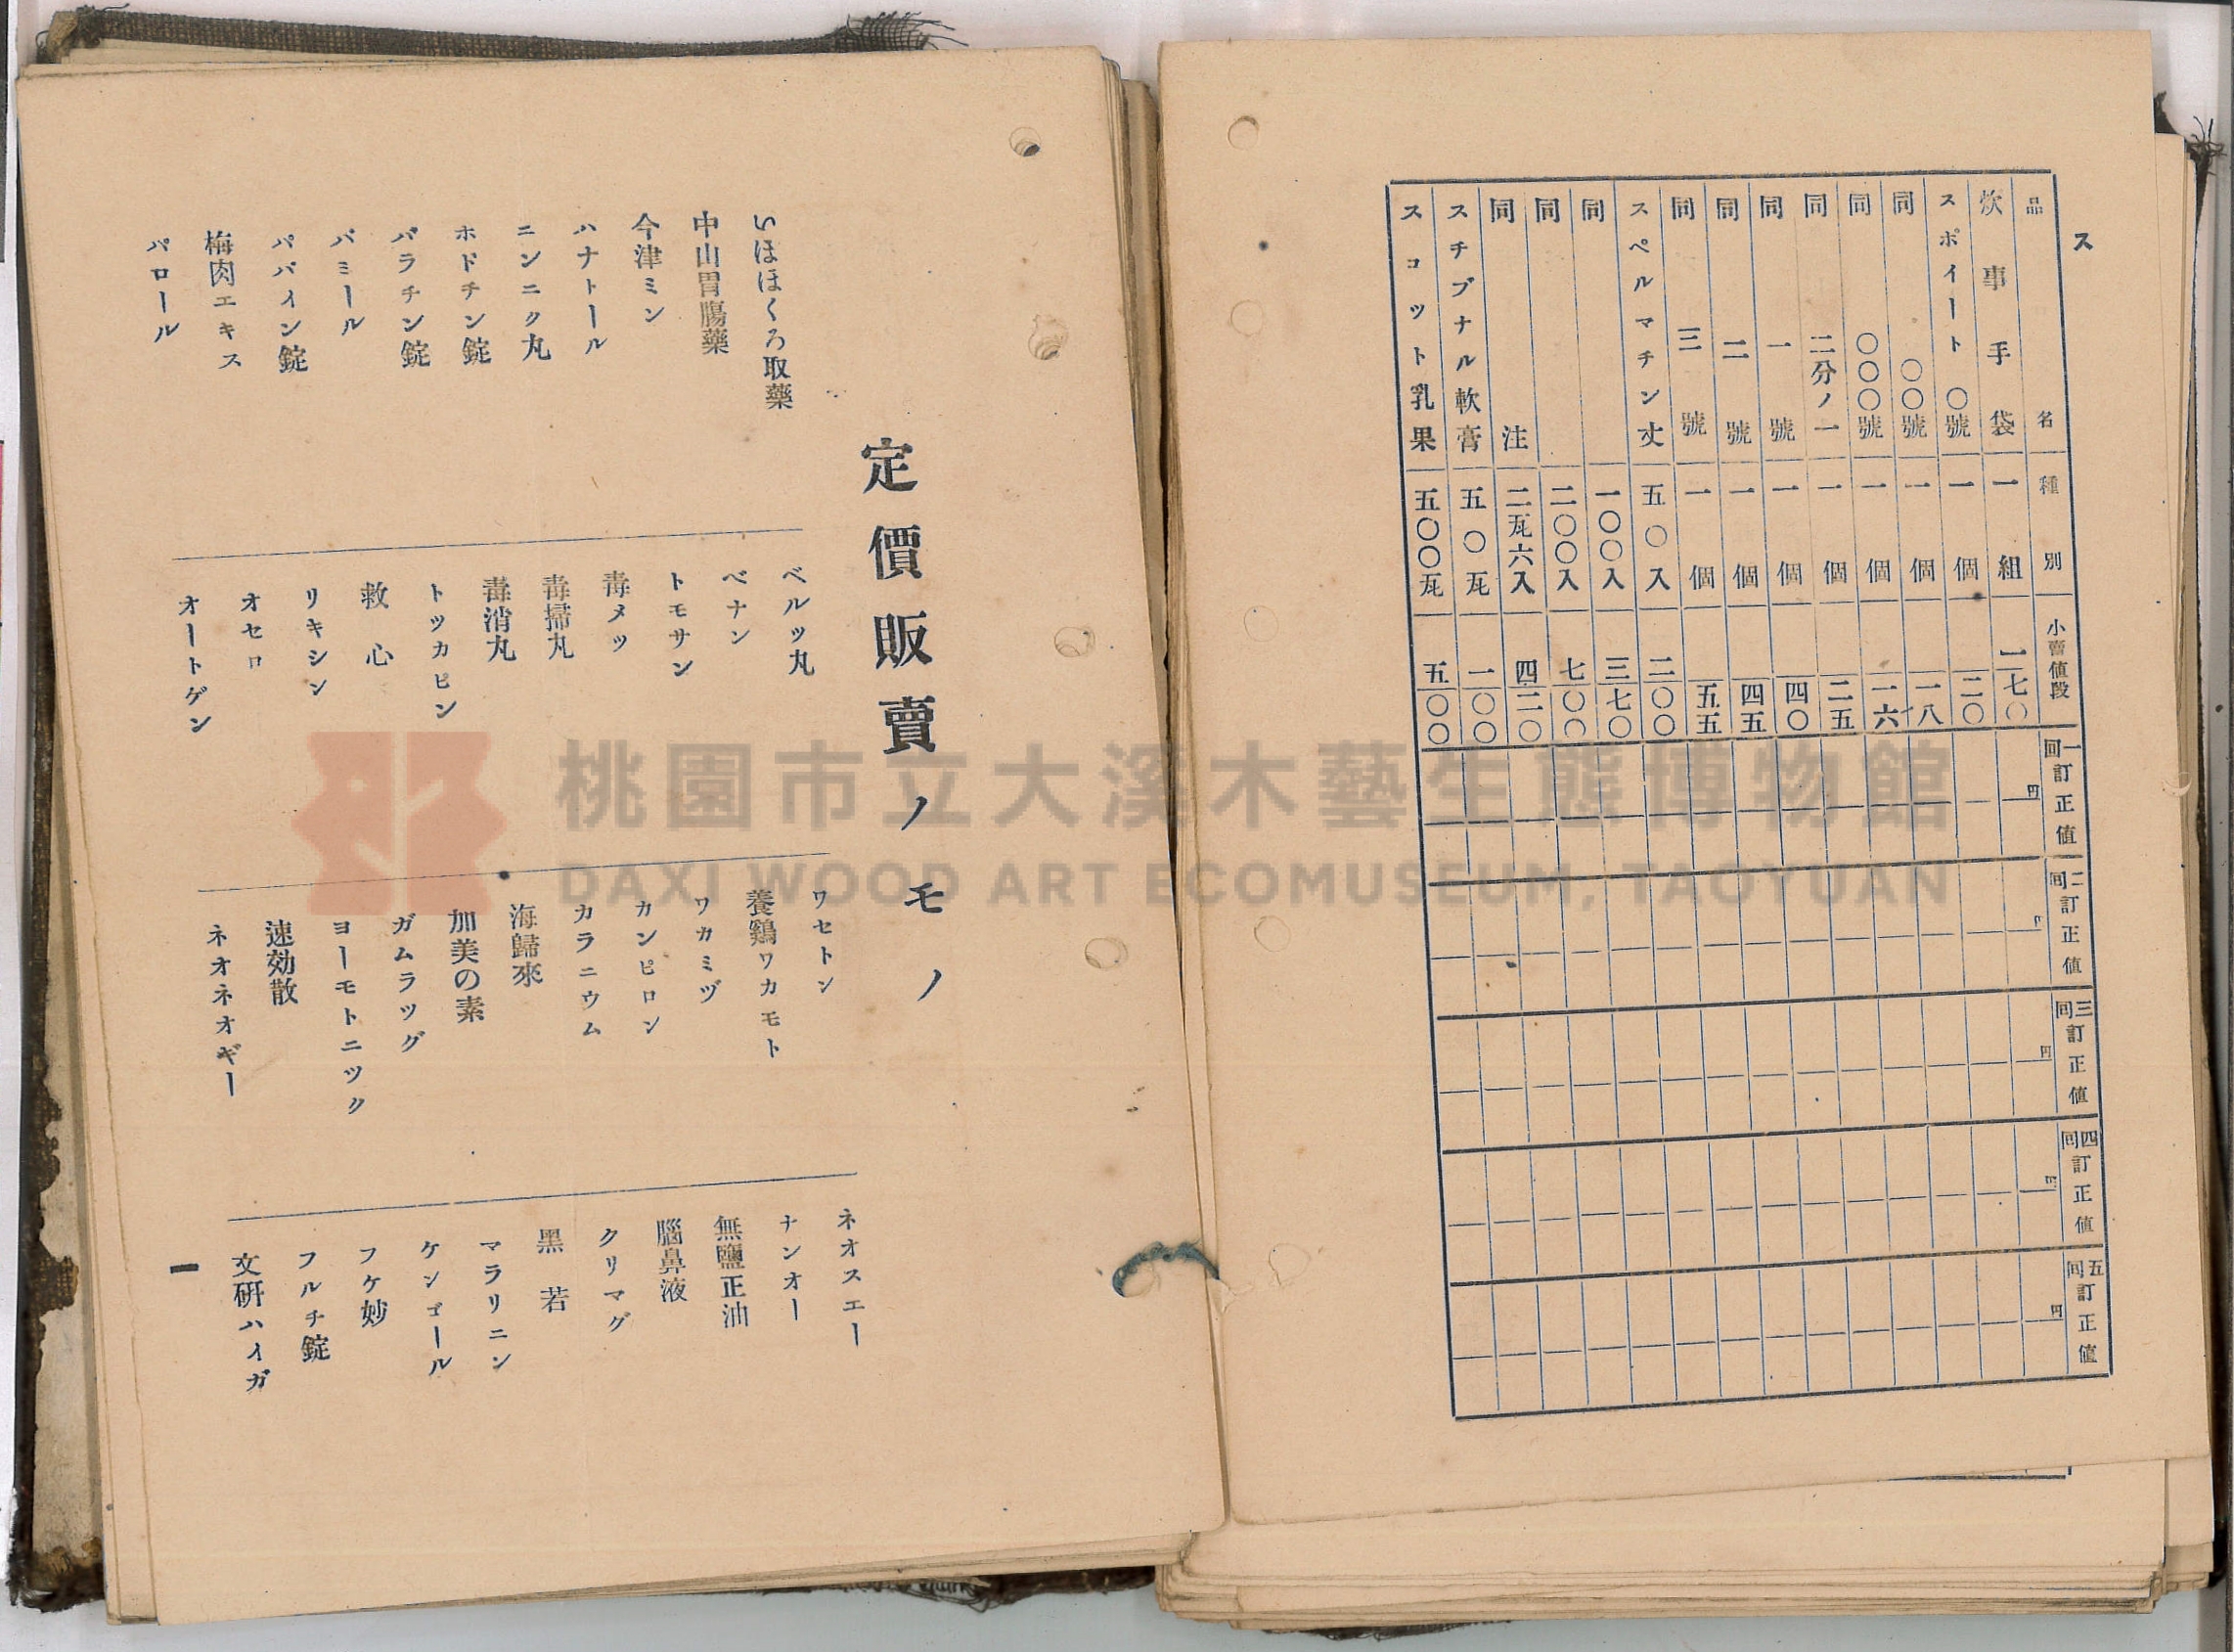 ス
品名 種別 小賣値段 一回訂正値 二回訂正値 三回訂正値 四回訂正値 五回訂正値
円 円 円 円 円
炊事手袋 一組 一七〇
スポイート 〇號 一個 二〇
同 〇〇號 一個 一八
同 〇〇〇號 一個 一六
同 二分ノ一 一個 二五
同 一號 一個 四〇
同 二號 一個 四五
同 三號 一個 五五
スペルマチン丈 五〇入 二〇〇
同 一〇〇入 三七〇
同 二〇〇入 七〇〇
同 注 二瓦六入 四二〇
スチブナル軟膏 五〇瓦 一〇〇
スコット乳果 五〇〇瓦 五〇〇
定價販賣ノモノ
いほほくろ取藥
中山胃腸藥
今津ミン
ハナトール
ニンニク丸
ホドチン錠
パラチン錠
パミール
パパイン錠
梅肉エキス
パロール
ベルツ丸
ベナン
トモサン
毒メツ
毒掃丸
毒消丸
トツカピン
救心
リキシン
オセロ
オートゲン
ワセトン
養鷄ワカモト
ワカミヅ
カンピロン
カラニウム
海歸來
加美の素
ガムラツグ
ヨーモトニツク
速効散
ネオネオギー
ネオスエー
ナンオー
無鹽正油
腦鼻液
クリマグ
黑若
マラリニン
ケンゴール
フケ妙
フルチ錠
文硏ハイガ
一
桃園市立大溪木藝生態博物館
DAXI WOOD ART ECOMUSEUM, TAOYUAN